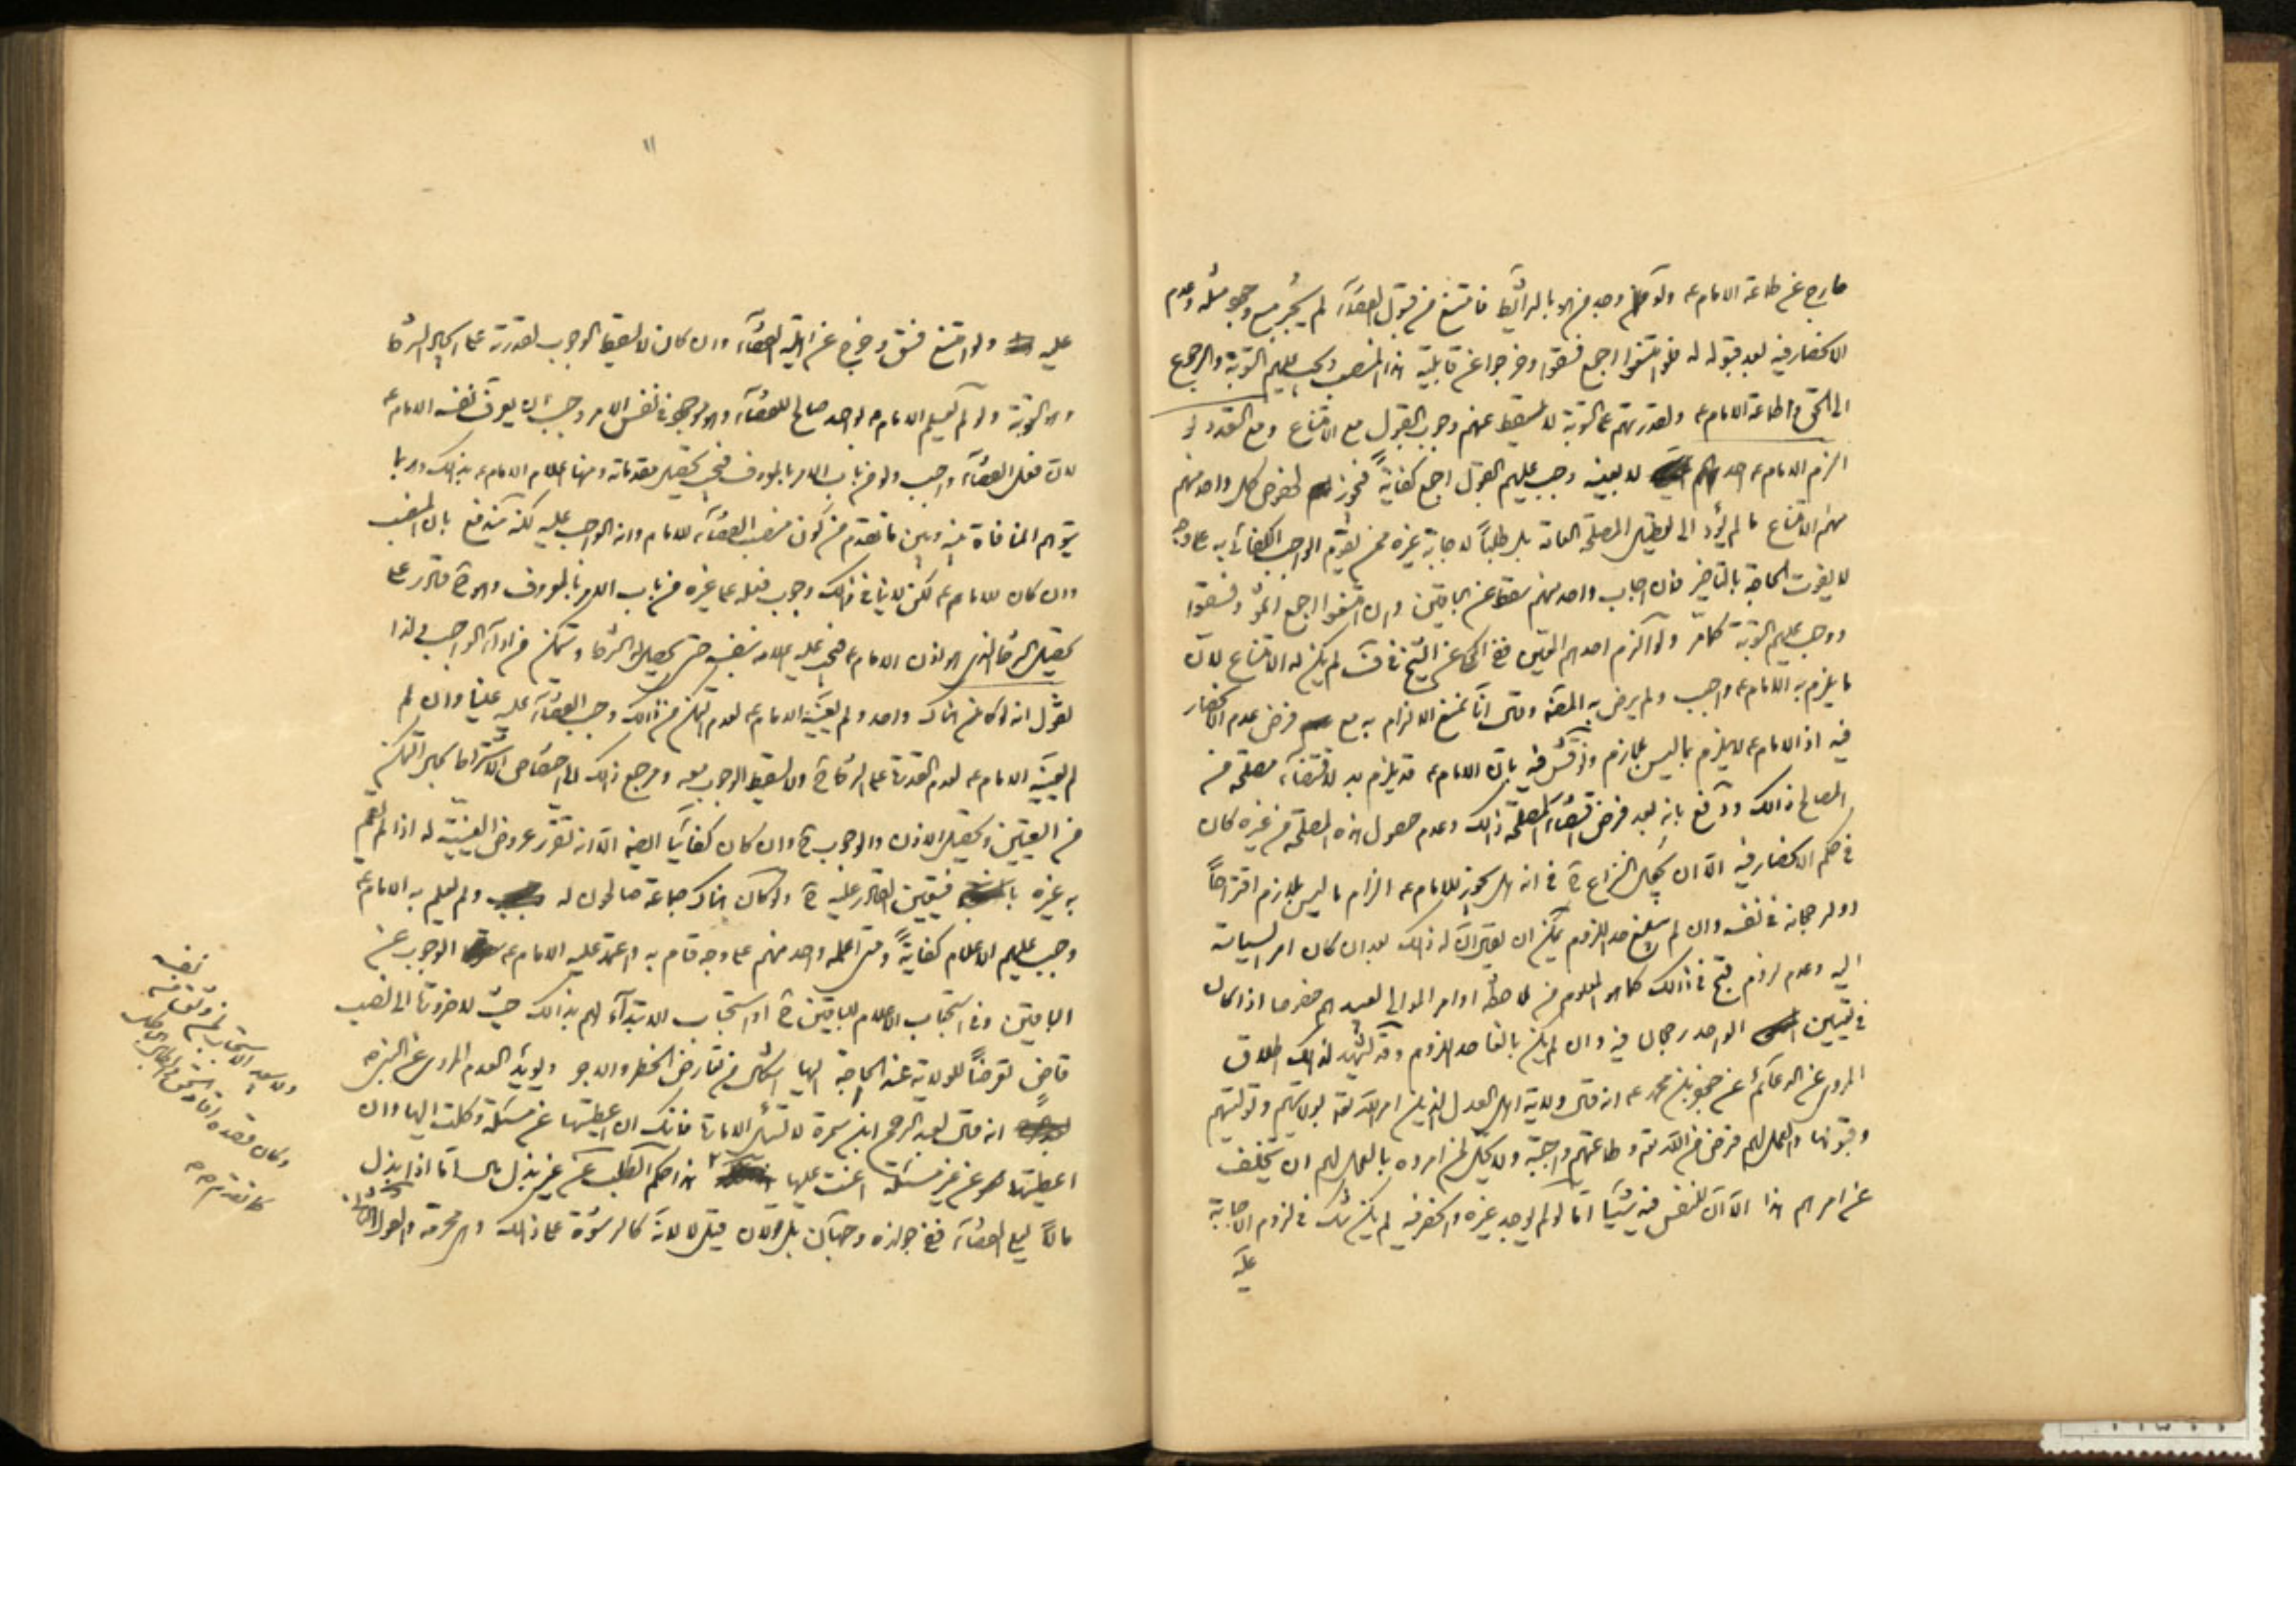 خارج عن طاعة الامام ع ولو وجد من هو بالشرائط فامتنع من قبول القضاء لم يجبر مع وجود مثله وعدم
الانحصار فيه بعد قبوله له فلو امتنعوا اجمع فسقوا وخرجوا عن قابلية هذا المنصب ويجب عليهم التوبة والرجوع
الى الحق واطاعة الامام ع ولقدرتهم على التوبة لا يسقط عنهم وجوب القبول مع الامتناع ومع التعدد لو
الزم الامام ع احدهم لا بعينه وجب عليهم القبول اجمع كفاية فيجوز لخصوص كل واحد منهم
منهم الامتناع ما لم يؤد الى تعطيل المصلحة العامة بل طلباً لاجابة غيره ممن يقوم الواجب الكفائي به على وجه
لا يفوت الحاجة بالتاخير فان اجاب واحد منهم سقط عن الباقين وان امتنعوا اجمع اثموا وفسقوا
ووجب عليهم التوبة كما مر ولو الزم احدهم المعين ففي المحكي عن الشيخ في ف لم يكن له الامتناع لان
ما يلزم به الامام ع واجب ولم يرض به المصنف وقال انا نمنع الالزام به مع فرض عدم الانحصار
فيه اذ الامام ع لا يلزم بما ليس بلازم ونوقش فيه بان الامام ع قد يلزم به لاقتضاء مصلحة من
المصالح ذلك ودفع بانه بعد فرض اقتضاء المصلحة ذلك وعدم حصول هذه المصلحة من غيره كان
في حكم الانحصار فيه الا ان يجعل النزاع ح في انه هل يجوز للامام ع الزام ما ليس بلازم اقتراحاً
او لرجحانه في نفسه وان لم يبلغ حد اللزوم يمكن ان يقال ان له ذلك بعد ان كان امر السياسة
اليه وعدم لزوم قبح في ذلك كما هو المعلوم من ملاحظة اوامر الموالى لعبيدهم خصوصا اذا كان
في تعيين الواحد رجحان فيه وان لم يكن بالغا حد اللزوم وقد يشهد لذلك اطلاق
المروي عن الدعائم عن جعفر بن محمد ع انه قال ولاية اهل العدل الذين امر الله تعالى بولايتهم وتوليتهم
وقبولها والعمل لهم فرض من الله تعالى وطاعتهم واجبة ولا يحل لمن امروه بالعمل لهم ان يتخلف
عن امرهم هذا الا ان للنفس فيه شيئا اما لو لم يوجد غيره وانحصر فيه لم يكن شك في لزوم الاجابة
عليه
١١
عليه ولو امتنع فسق وخرج عن اهلية القضاء وان كان لا يسقط الوجوب لقدرته على اتحصيل الشرط
وهو التوبة ولو لم يعلم الامام ع بواحد صالح للقضاء وهو موجود في نفس الامر وجب ان يعرف نفسه الامام ع
لان فعل القضاء واجب ولو من باب الامر بالمعروف فيجب تحصيل مقدماته ومنها اعلام الامام ع بذلك وربما
يتوهم المنافاة بينه وبين ما تقدم من كون منصب القضاء للامام وانه الواجب عليه لكنه مندفع بان المنصب
وان كان للامام ع لكن لا ينافي ذلك وجوب فعله على غيره من باب الامر بالمعروف وهو ح قادر على
تحصيل الشرط الذي هو اذن الامام ع فيجب عليه اعلامه بنفسه حتى يحصل له الشرط ويتمكن من اداء الواجب ولذا
نقول انه لو كان هناك واحد ولم يعينه الامام ع لعدم التمكن من ذلك وجب القضاء عليه علينا وان لم
لم يعينه الامام ع لعدم القدرة على الشرط ح ولا يسقط الوجوب معه ومرجع ذلك الى اختصاص الاشتراط بحال التمكن
من التعيين وتحصيل الاذن والوجوب ح وان كان كفائيا الا انه تقرر عروض العينية له اذا لم يقم
به غيره فيتعين القادر عليه ح ولو كان هناك جماعة صالحون له ولم يعلم به الامام ع
وجب عليهم الاعلام كفاية ومتى اعلمه واحد منهم على وجه قام به واعتمد عليه الامام ع سقط الوجوب عن
الباقين وفي استحباب الاعلام للباقين ح او استحباب الابتداء لهم بذلك حيث لا ضرورة الى نصب
قاض تعرضاً للولاية عند الحاجة اليها اشكال من تعارض الخطر والاجر ويؤيد العدم المروي عن النبي ص
انه قال لعبد الرحمن ابن سمرة لا تسئل الامارة فانك ان اعطيتها عن مسئلة وكلت اليها وان
اعطيتها عن غير مسئلة اعنت عليها هذا حكم الطلب عن غير بذل مال اما اذا بذل
مالاً ليلي القضاء ففي جوازه وجهان بل قولان قيل لا لانه كالرشوة على ذلك وهي محرمة
نفسه
كما تقدم